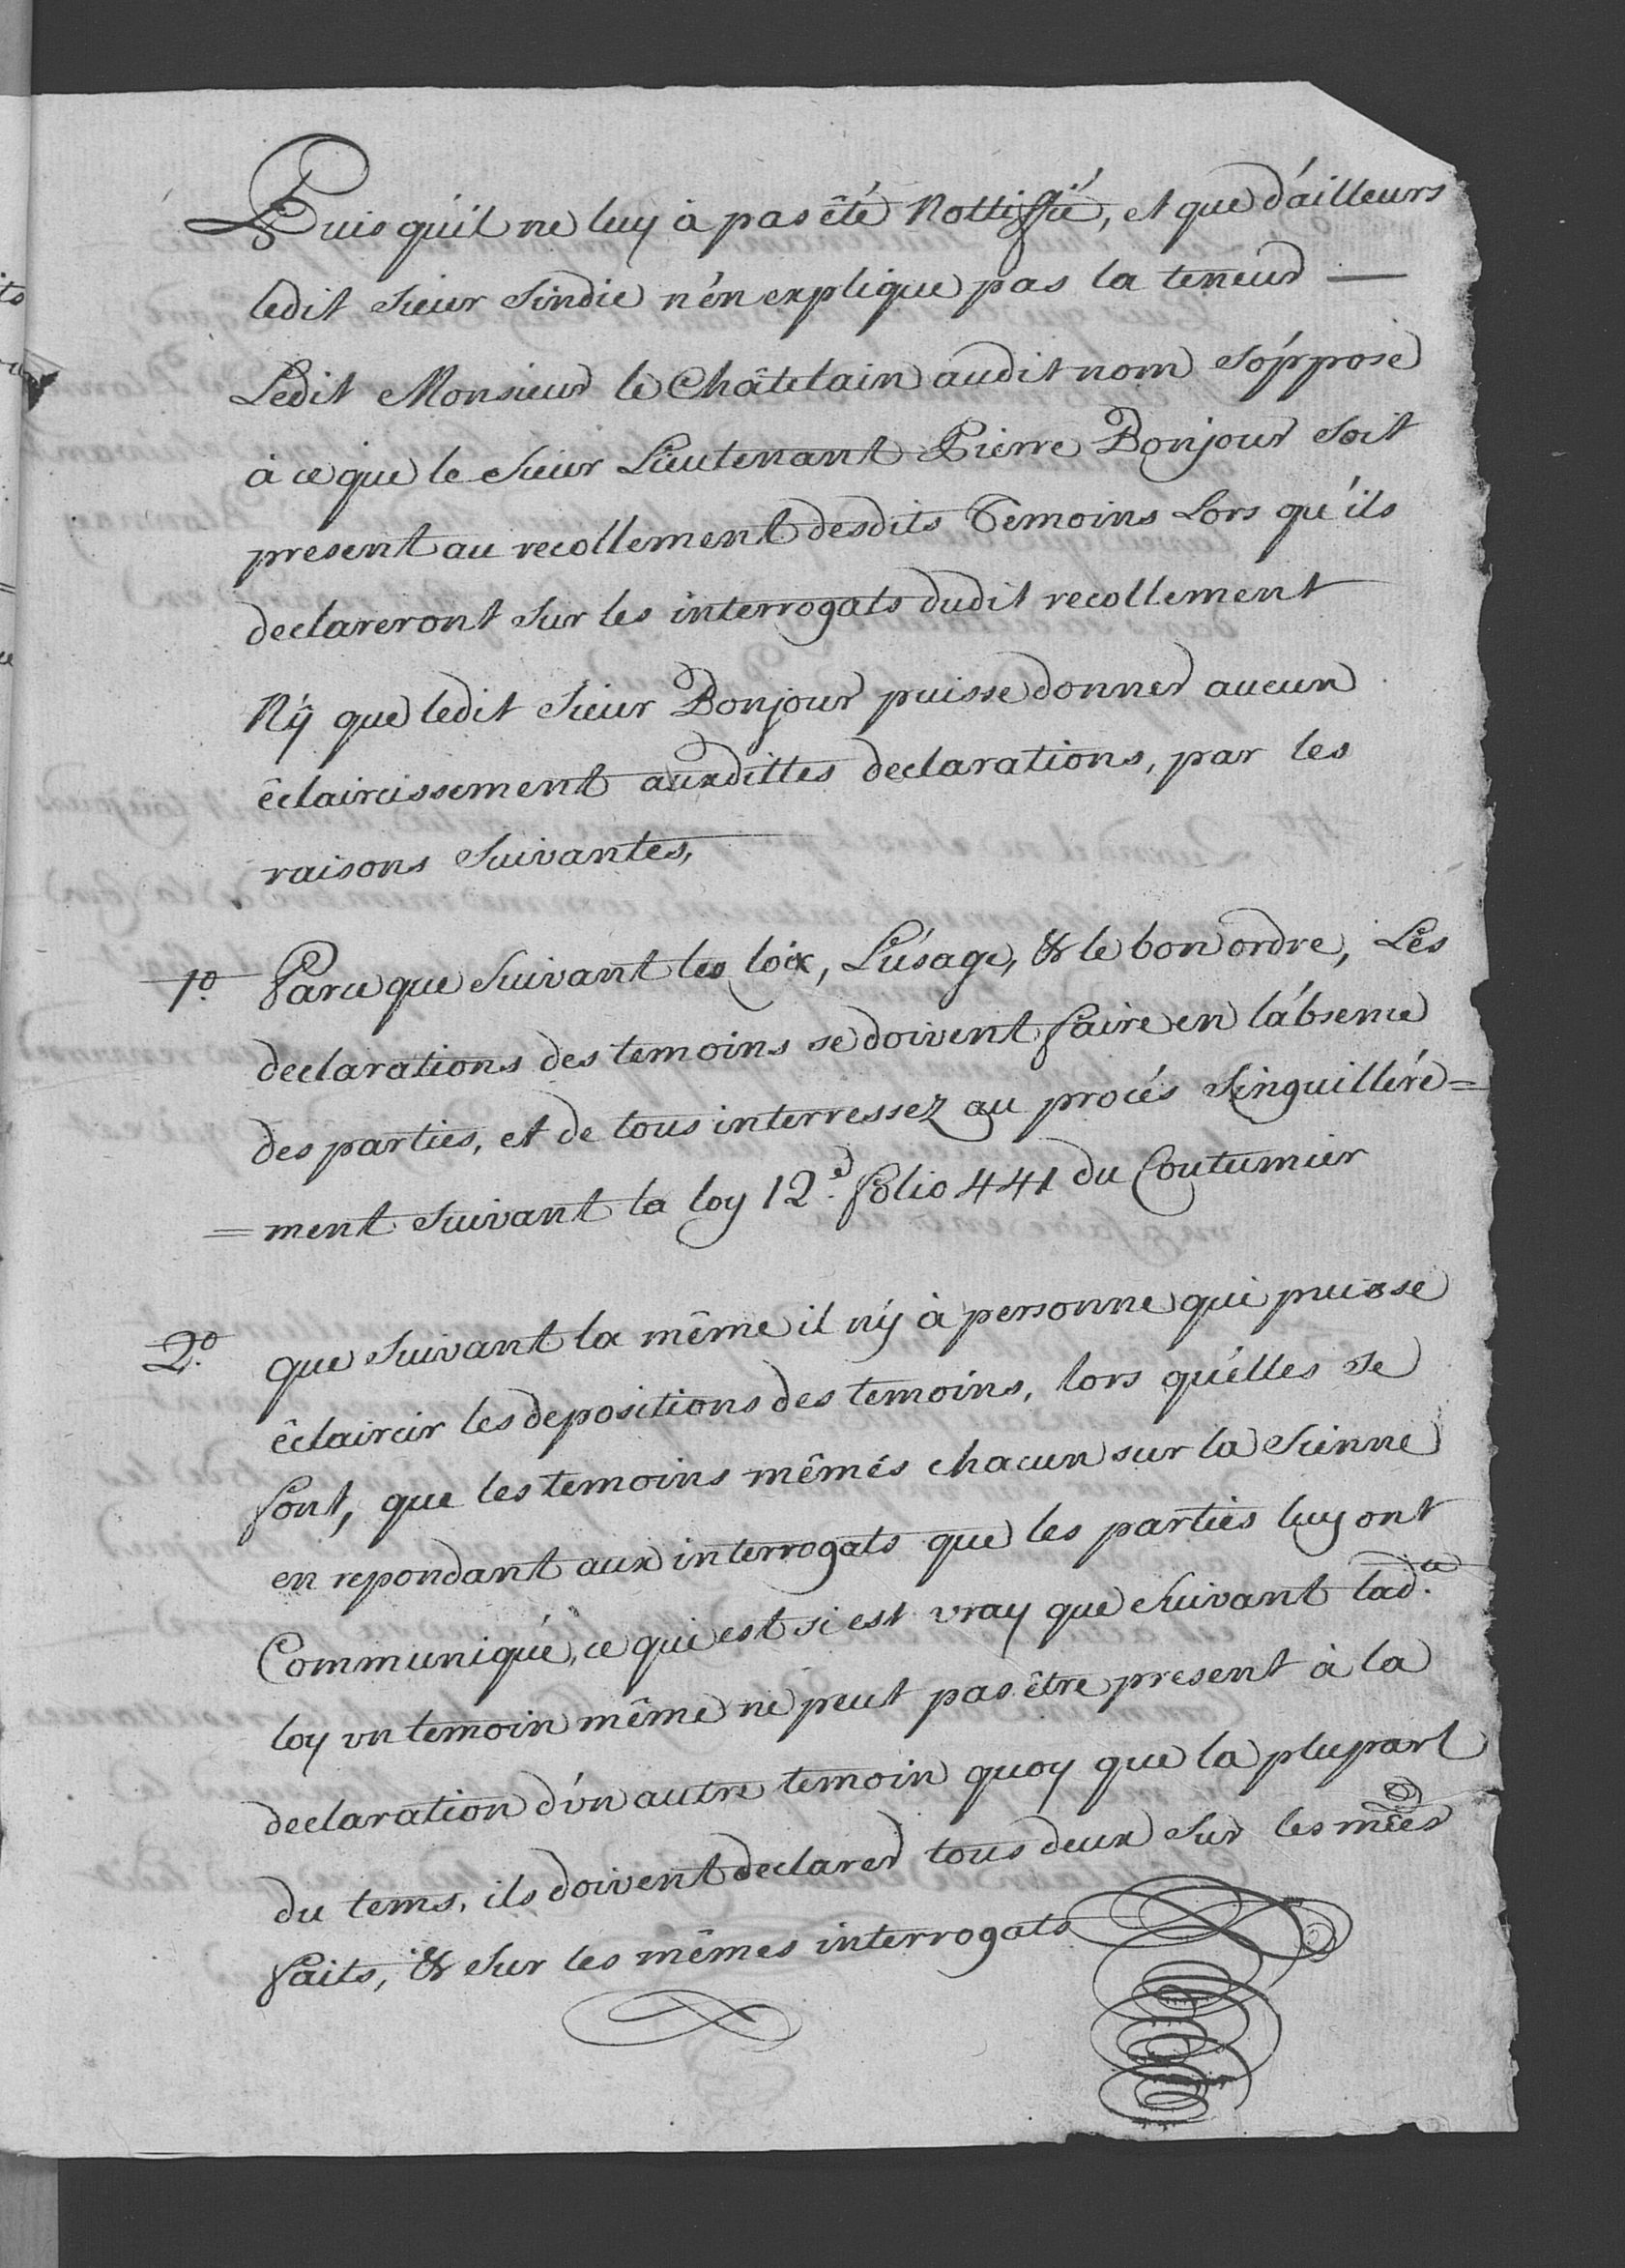 Puis qu'il ne luy à pas êté Nottiffié, et que d'ailleurs
ledit Sieur Sindic n'en explique pas la teneur —
Ledit Monsieur le Châtelain audit nom s'oppose
à ce que le Sieur Lieutenant Pierre Bonjour soit
present au recollement desdits Temoins Lors qu'ils
declareront sur les interrogats dudit recollement
Nÿ que ledit Sieur Bonjour puisse donner aucun
êclaircissement auxdittes declarations, par les
raisons suivantes,
1.º Parce que suivant les loix, L'usage, & le bon ordre, Les
declarations des temoins se doivent faire en l'absence
des parties, et de tous interressez au procés Singuilliére=
=ment suivant la loy 12.e folio 441 du Coutumier
2.º que suivant la même il n'y à personne qui puisse
êclaircir les depositions des temoins, lors qu'elles se
font, que les temoins mêmes chacun sur la Sienne
en repondant aux interrogats que les parties luy ont
Communiqué, ce qui est si est vray que suivant lad.te
loy un temoin même ne peut pas être present à la
declaration d'un autre temoin quoy que la plupart
du tems, ils doivent declarer tous deux sur les mêes
faits, & sur les mêmes interrogats